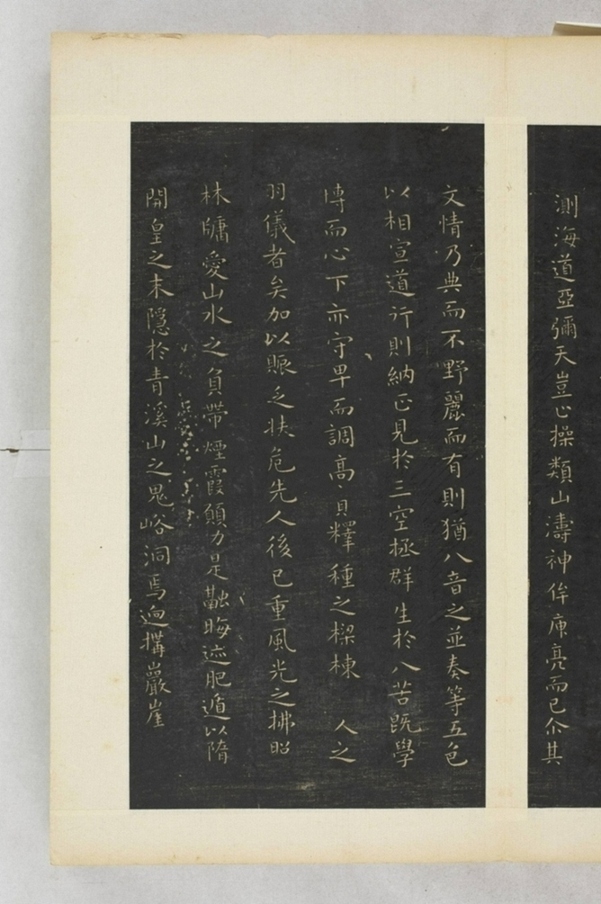 測海道亞彌天豈止操類山濤神侔庾亮而已尒其
文情乃典而不野麗而有則猶八音之並奏等五色
以相宣道行則納正見於三空拯群生於八苦既學
博而心下亦守卑而調高寔釋種之樑棟 人之
羽儀者矣加以賑乏扶危先人後己重風光之拂照
林牖愛山水之負帶煙霞願力是融晦迹肥遁以隋
開皇之末隱於青溪山之鬼峪洞焉迥搆巖崖